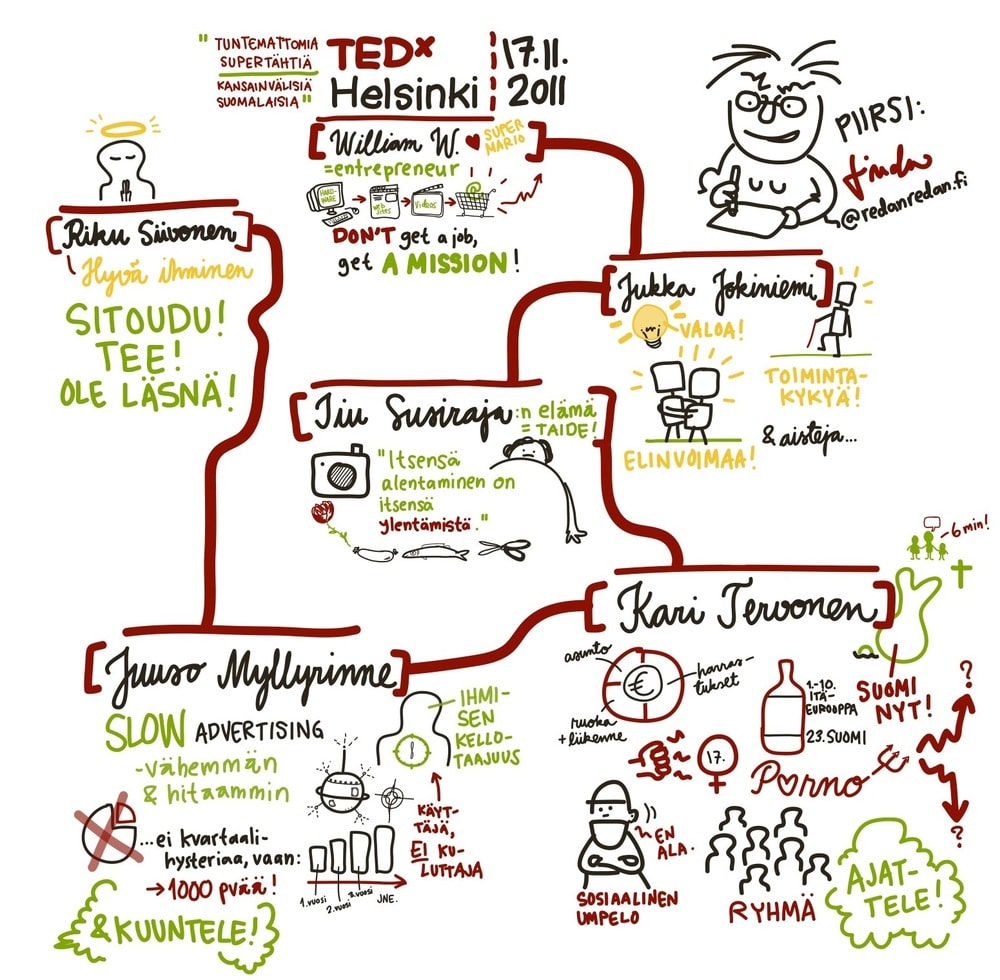 "TUNTEMATTOMIA
SUPERTÄHTIÄ
KANSAINVÄLISIÄ
SUOMALAISIA"
TEDx
Helsinki
17.11.
2011
PIIRSI:
Linda
@redanredan.fi
William W. ♥ SUPER
MARIO
=entrepreneur
HARD-
WARE
WEB
SITES
VIDEOS
@
DON'T get a job,
get A MISSION!
Jukka Jokiniemi
VALOA!
TOIMINTA-
KYKYÄ!
ELINVOIMAA!
& aisteja...
Iiu Susiraja:n elämä
= TAIDE!
"Itsensä
alentaminen on
itsensä
ylentämistä."
Kari Tervonen
-6 min!
asunto
€
harras-
tukset
ruoka
+liikenne
1.-10.
ITÄ-
EUROOPPA
23. SUOMI
SUOMI
NYT!
17.
P♥rno
?
?
EN
ALA.
SOSIAALINEN
UMPELO
RYHMÄ
AJAT-
TELE!
Juuso Myllyrinne
SLOW ADVERTISING
-vähemmän
& hitaammin
...ei kvartaali-
hysteriaa, vaan:
→1000 pvää!
& KUUNTELE!
1.vuosi
2.vuosi
3.vuosi
JNE.
IHMI-
SEN
KELLO-
TAAJUUS
KÄYT-
TÄJÄ,
EI KU-
LUTTAJA
Riku Siivonen
Hyvä ihminen
SITOUDU!
TEE!
OLE LÄSNÄ!